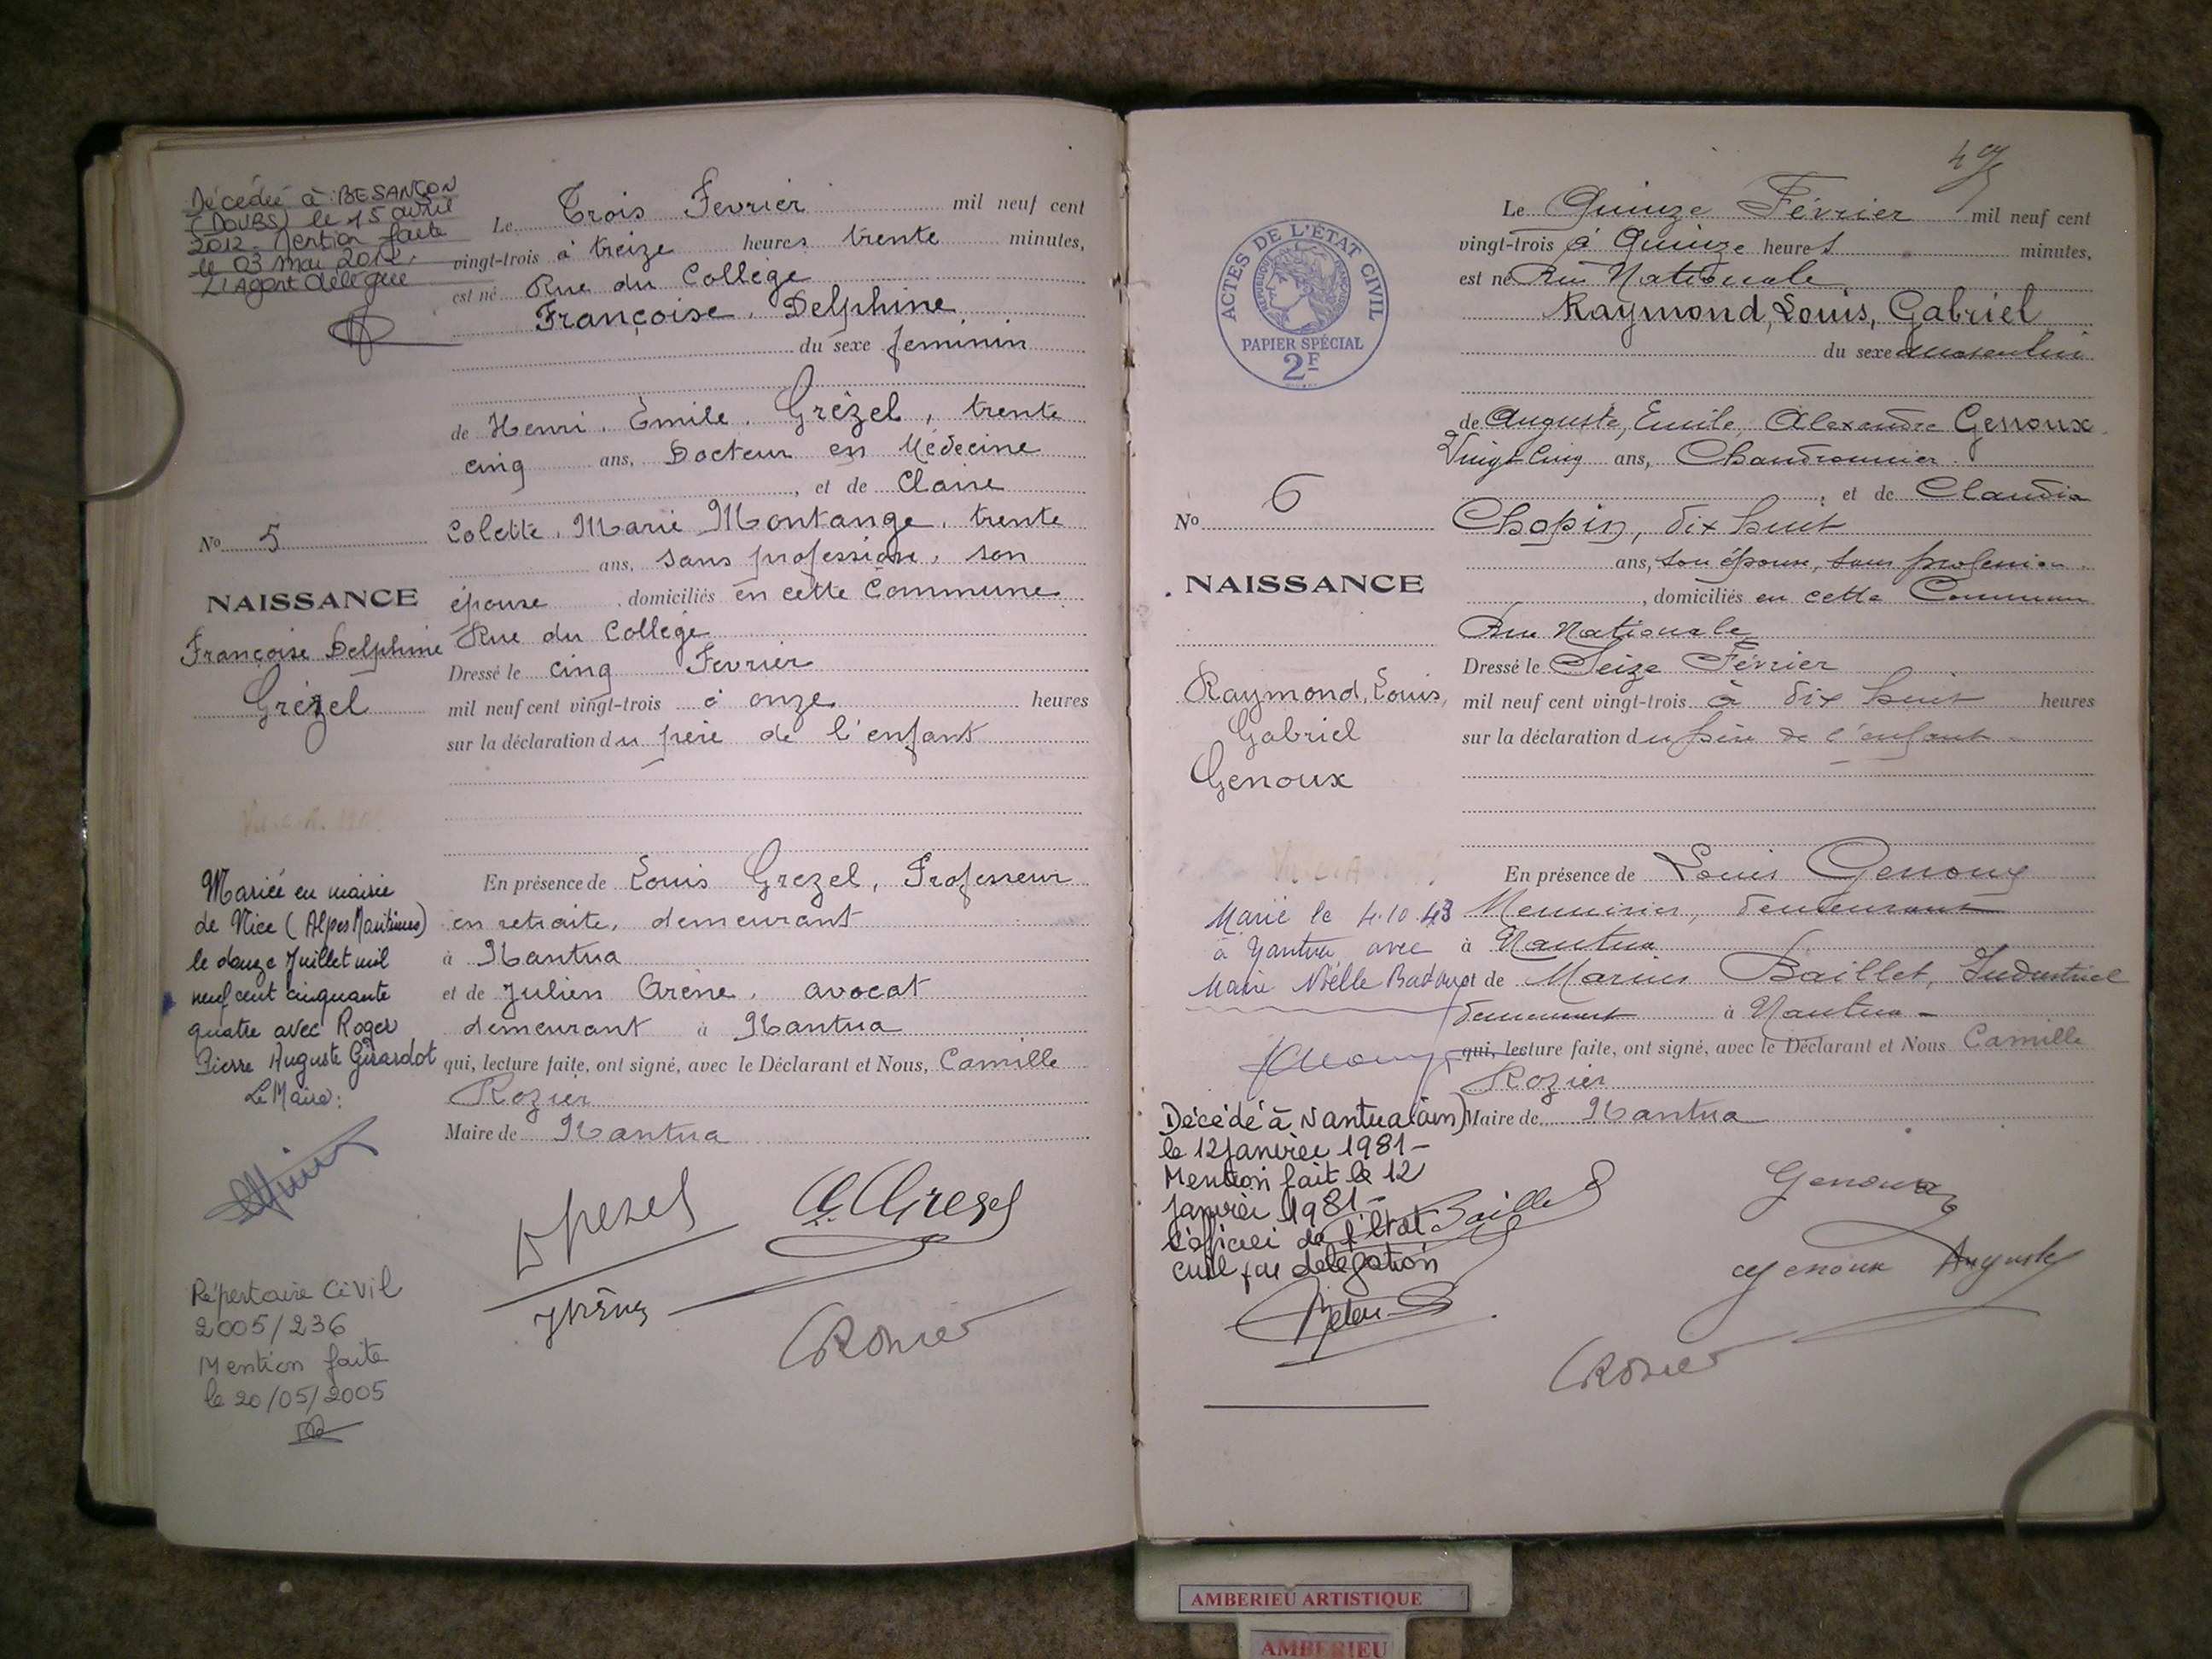 Décédée à BESANÇON
(DOUBS) le 15 avril
2012. Mention faite
le 03 mai 2012.
L'Agent délégué
Le Trois Fevrier mil neuf cent
vingt-trois à treize heures trente minutes,
est né Rue du Collège
Françoise, Delphine
du sexe feminin
de Henri, Emile, Grézel, trente
cinq ans, Docteur en Médecine
, et de Claire
Colette, Marie Montange, trente
ans, sans profession, son
épouse, domiciliés en cette Commune
Rue du Collège
Dressé le cinq Fevrier
mil neuf cent vingt-trois à onze heures
sur la déclaration du père de l'enfant
No 5
NAISSANCE
Françoise Delphine
Grézel
Mariée en mairie
de Nice (Alpes Maritimes)
le douze Juillet mil
neuf cent cinquante
quatre avec Roger
Pierre Auguste Girardot
Le Maire:
Répertoire Civil
2005/236
Mention faite
le 20/05/2005
En présence de Louis Grezel, Professeur
en retraite, demeurant
à Nantua
et de Julien Arène, avocat
demeurant à Nantua
qui, lecture faite, ont signé, avec le Déclarant et Nous, Camille
Rozier
Maire de Nantua
CRozier
49
ACTES DE L'ÉTAT CIVIL
RÉPUBLIQUE FRANÇAISE
PAPIER SPÉCIAL
2F
Le Quinze Février mil neuf cent
vingt-trois à Quinze heures minutes,
est né Rue Nationale
Raymond, Louis, Gabriel
du sexe masculin
de Auguste, Emile, Alexandre Genoux
Vingt cinq ans, Chaudronnier
, et de Claudia
Chopin, dix huit
ans, son épouse, sans profession
, domiciliés en cette Commune
Rue Nationale
Dressé le Seize Février
mil neuf cent vingt-trois à dix huit heures
sur la déclaration du père de l'enfant
No 6
NAISSANCE
Raymond, Louis,
Gabriel
Genoux
Marié le 4.10.43
à Nantua avec
Marie Noëlle
Décédé à Nantua (ain)
le 12 janvier 1981-
Mention fait le 12
janvier 1981-
l'officier de l'état
civil par délégation
En présence de Louis Genoux
Menuisier, demeurant
à Nantua
et de Marius Baillet, Industriel
demeurant à Nantua
qui, lecture faite, ont signé, avec le Déclarant et Nous Camille
Rozier
Maire de Nantua
Genoux
Baillet
Genoux Auguste
CRozier
AMBERIEU ARTISTIQUE
AMBERIEU